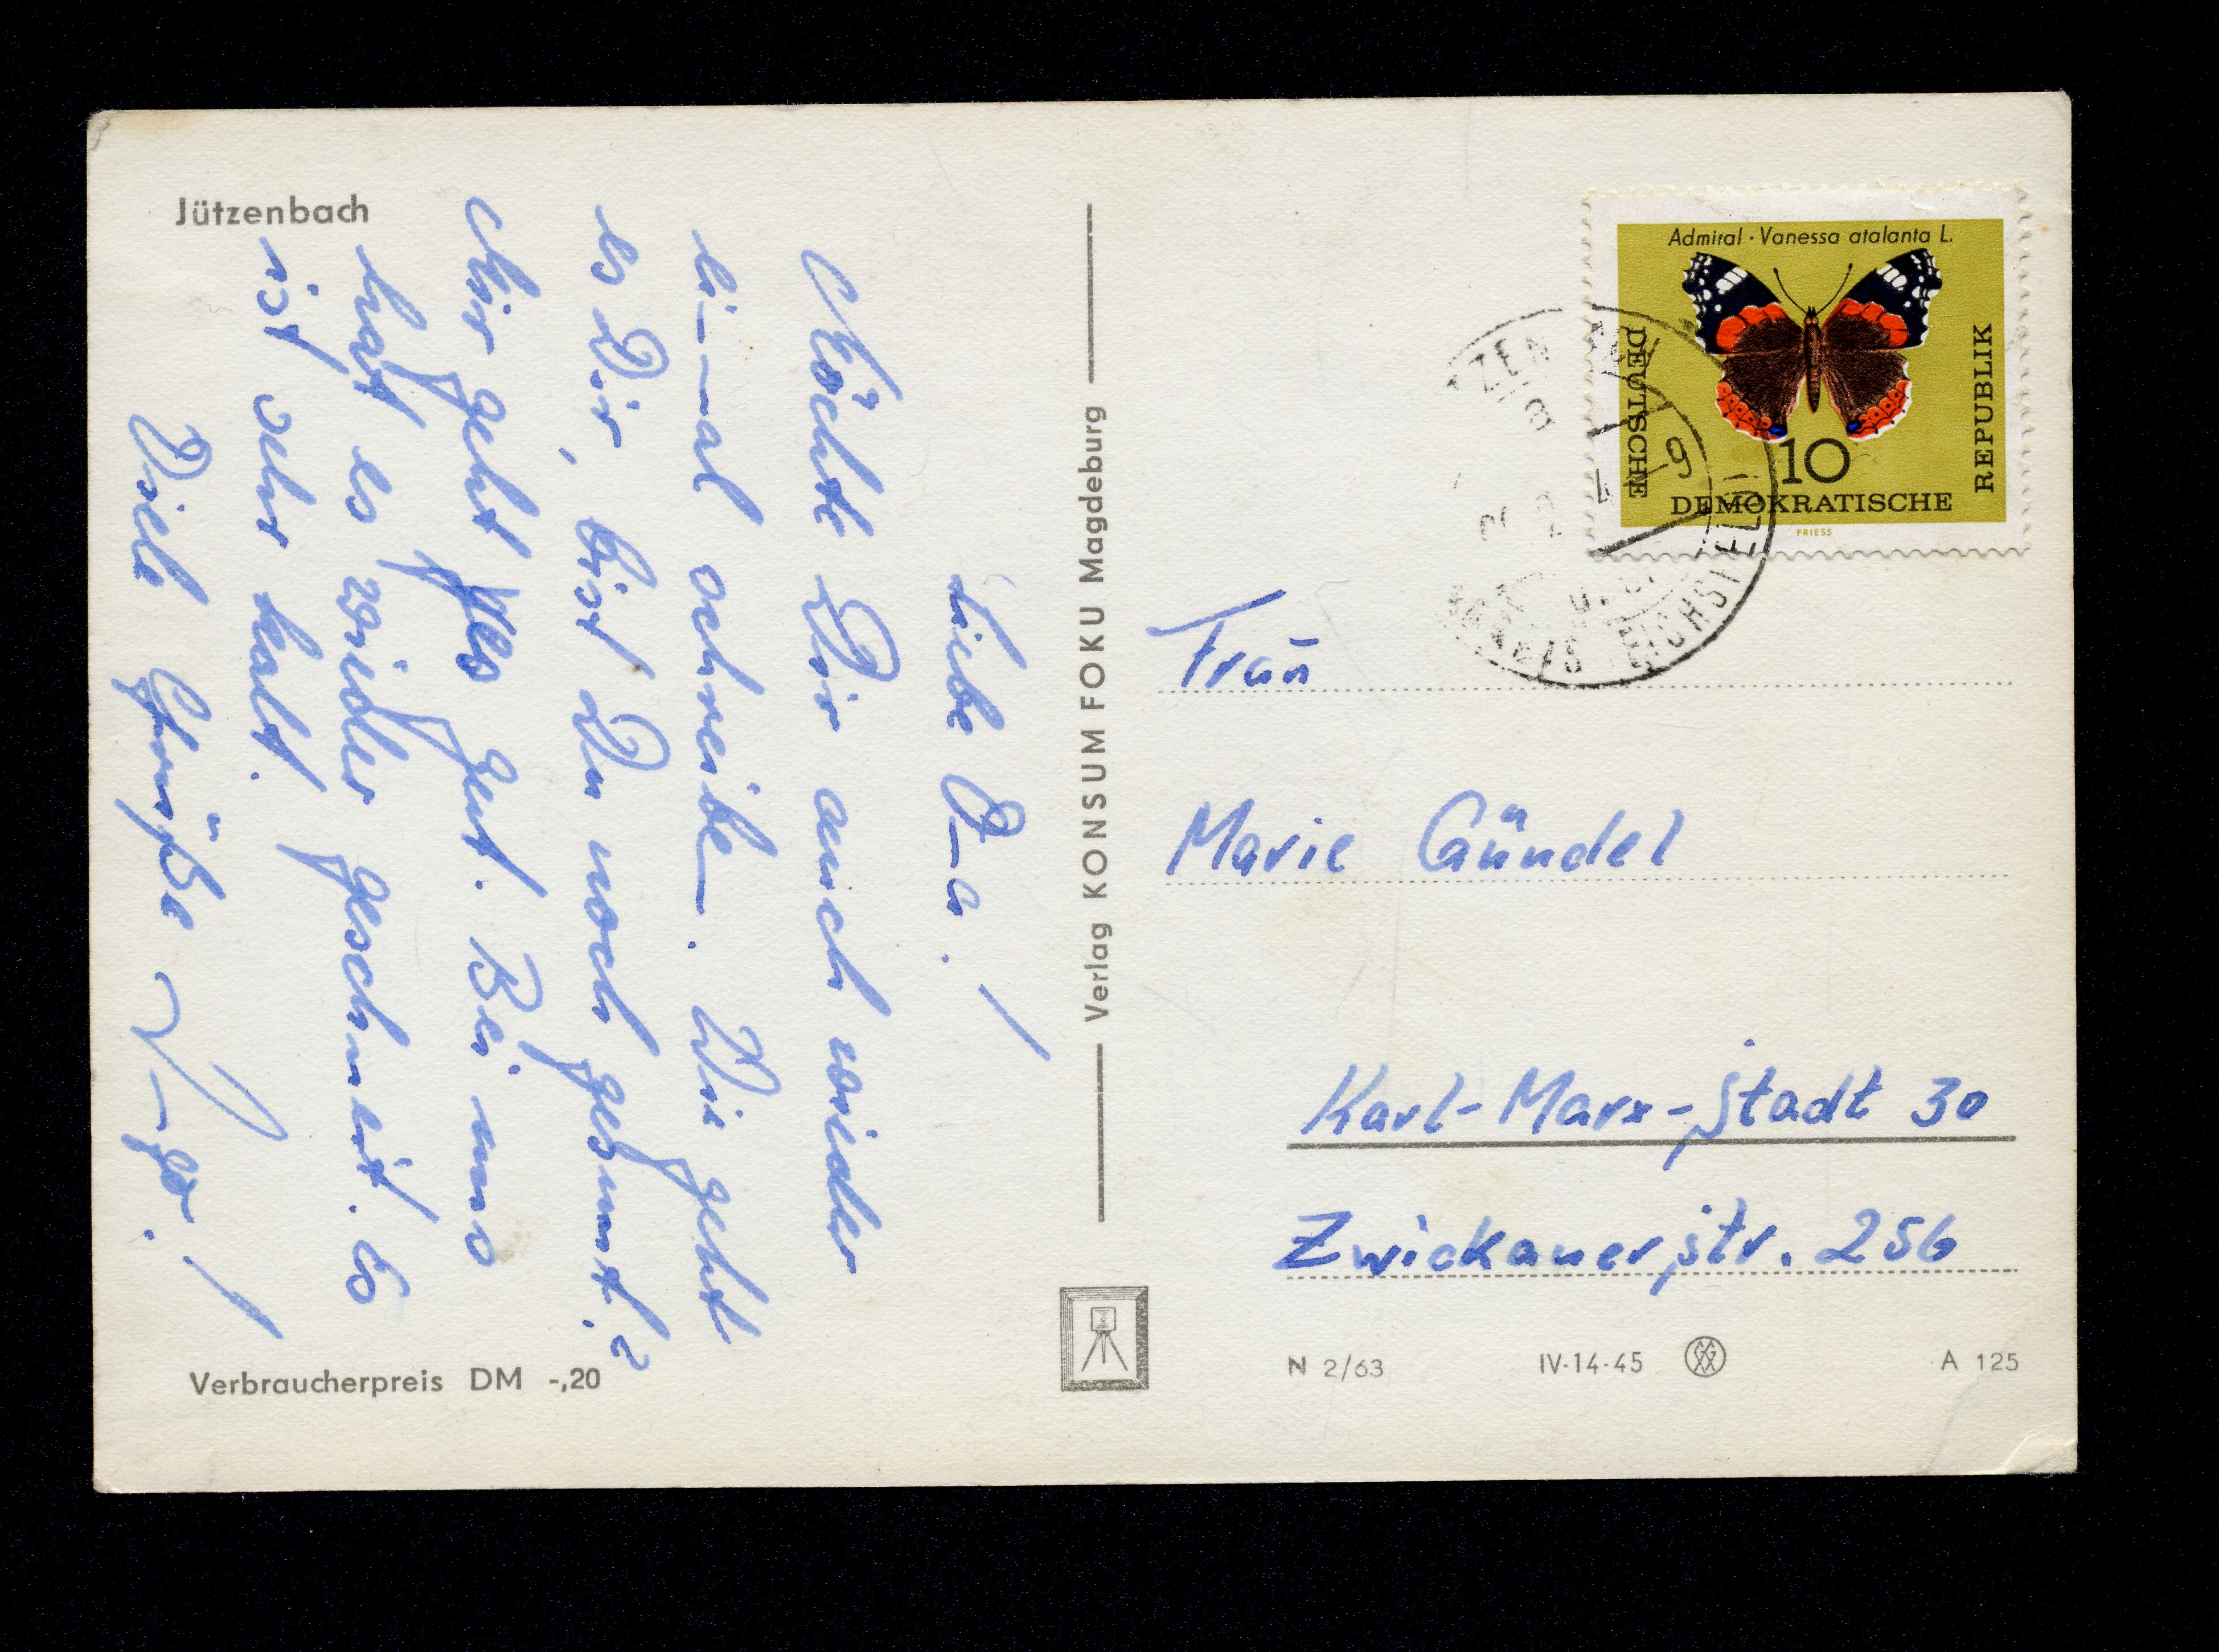 Jützenbach
Liebe Oma!
Möchte Dir auch wieder
einmal schreiben. Wie geht
es Dir, bist Du noch gesund?
Mir geht es gut. Bei uns
hat es wieder geschneit. Es
ist sehr kalt.
Viele Grüße Ingo!
Verbraucherpreis DM -,20
Verlag KONSUM FOKU Magdeburg
Admiral · Vanessa atalanta L.
DEUTSCHE
10
DEMOKRATISCHE
REPUBLIK
PRIESS
Frau
Marie Gündel
Karl-Marx-Stadt 30
Zwickauerstr. 256
N 2/63
IV-14-45
A 125